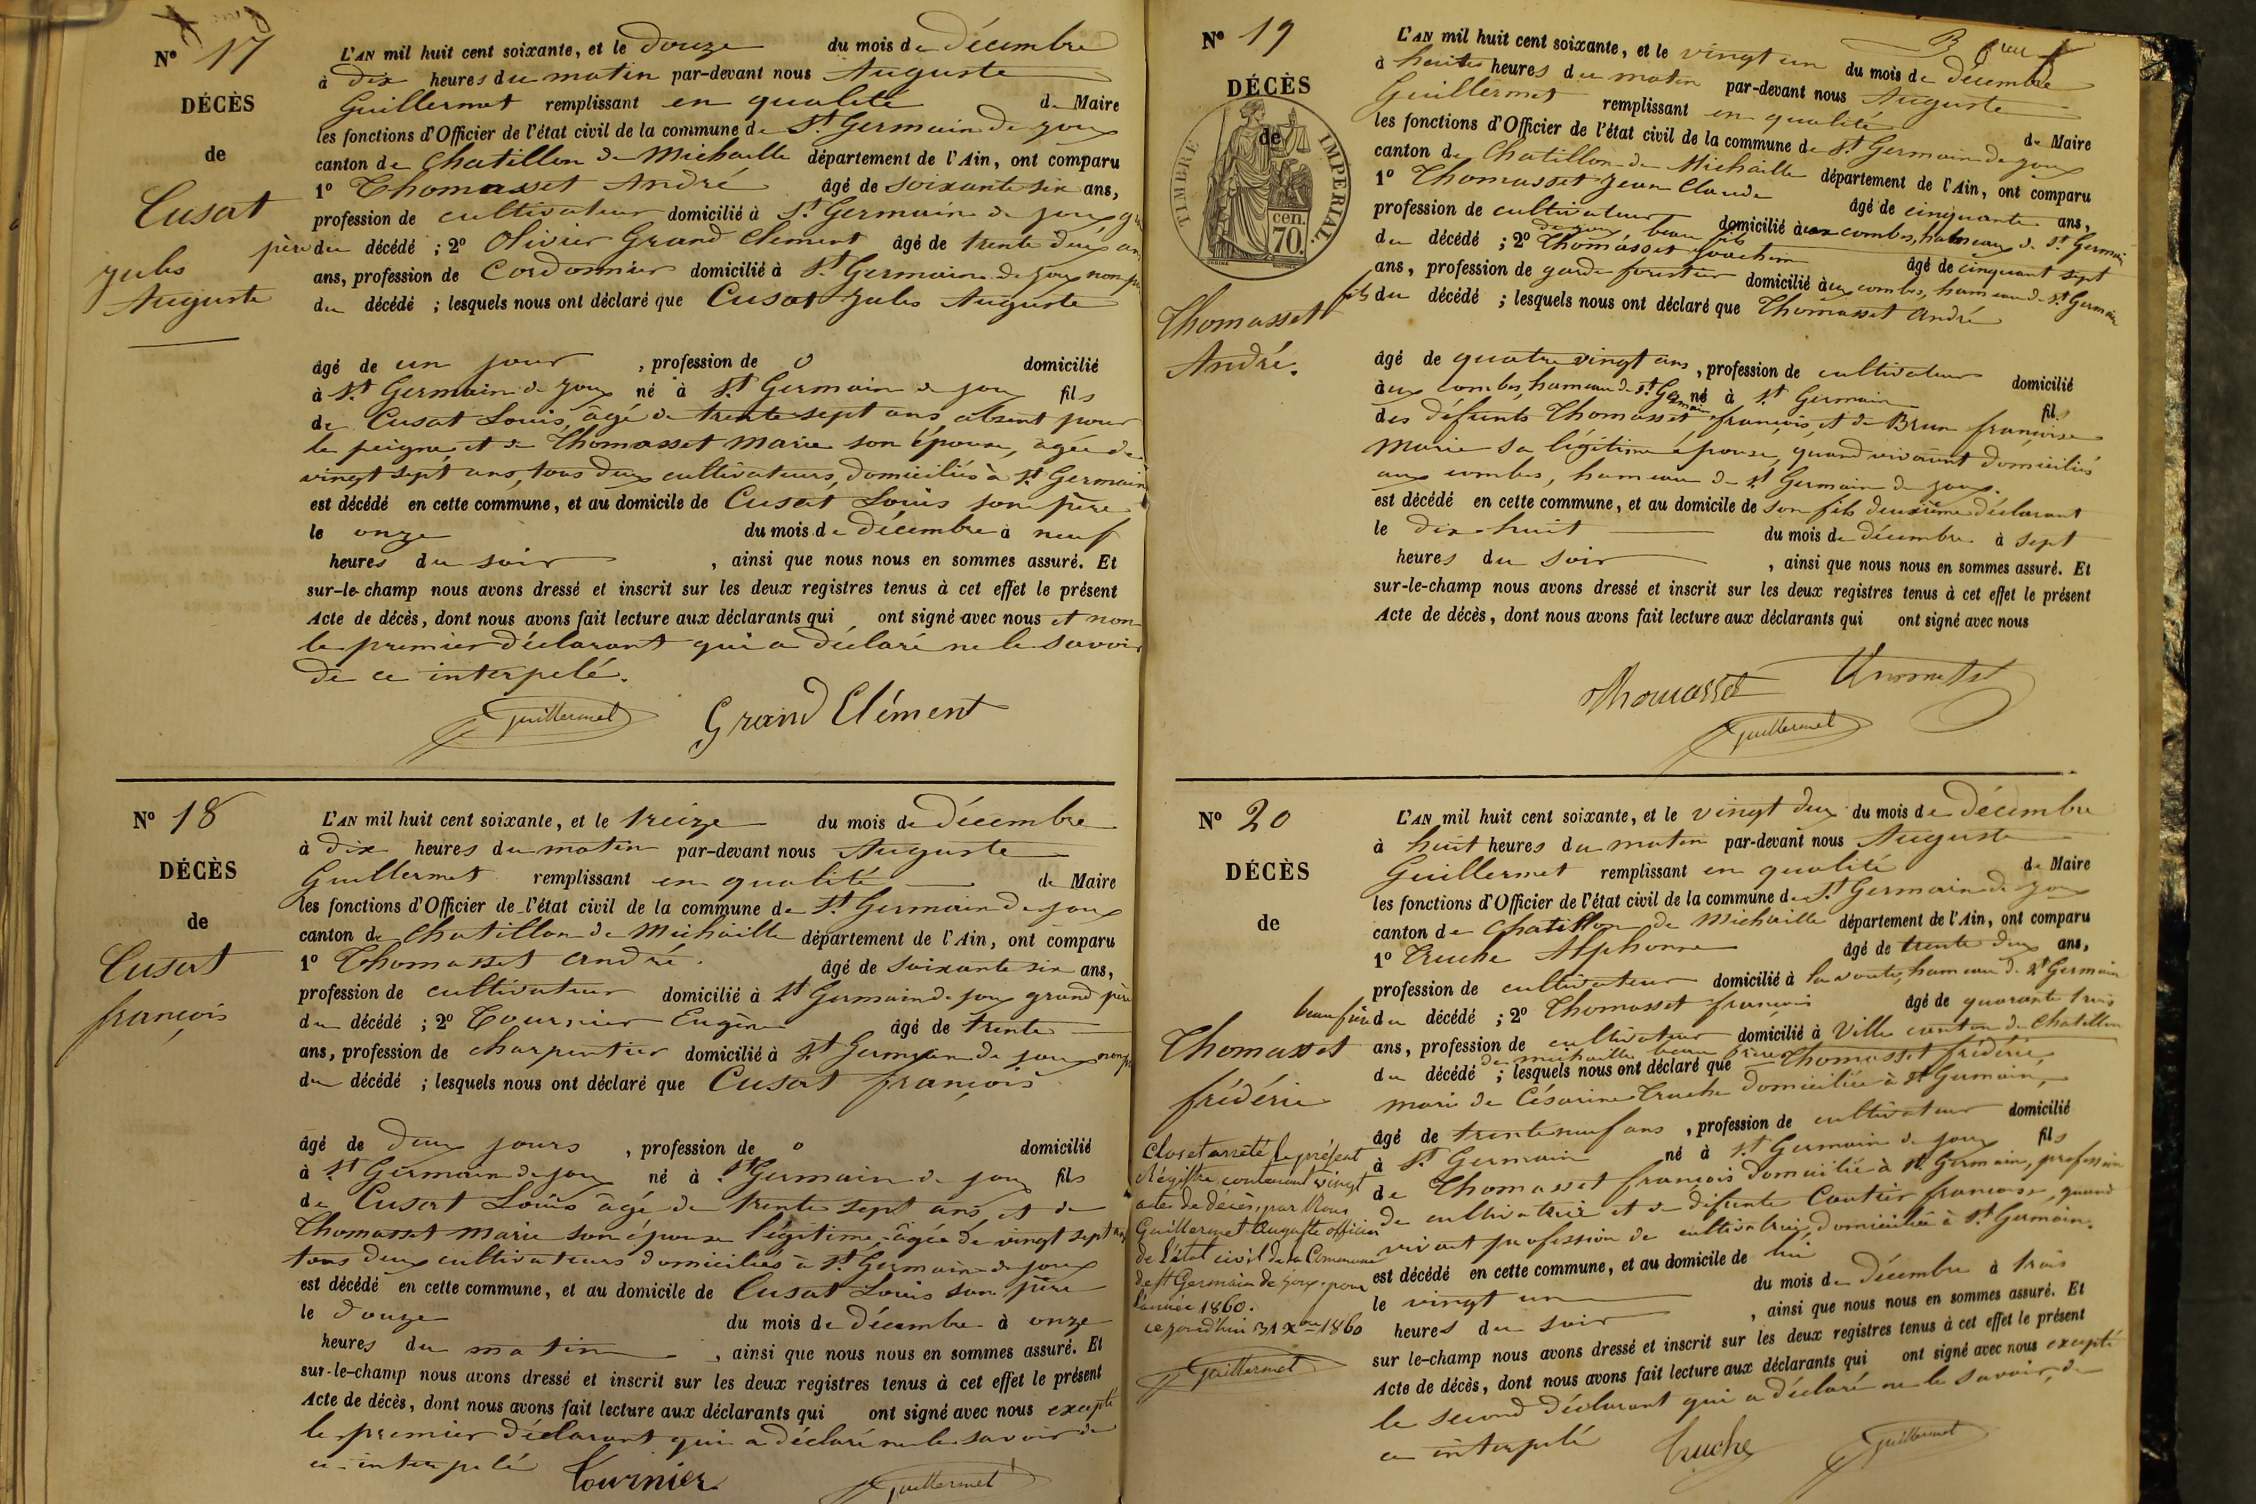 Nº 17
DÉCÈS
de
Cusat
Jules
Auguste
L'AN mil huit cent soixante, et le douze du mois de Décembre
à dix heures du matin par-devant nous Auguste
Guillermet remplissant en qualité de Maire
les fonctions d'Officier de l'état civil de la commune de St Germain de Joux
canton de Chatillon de Michaille département de l'Ain, ont comparu
1º Thomasset André âgé de soixante six ans,
profession de cultivateur domicilié à St Germain de Joux
père du décédé ; 2º Olivier Grand Clément âgé de trente deux ans
ans, profession de Cordonnier domicilié à St Germain de Joux non
du décédé ; lesquels nous ont déclaré que Cusat Jules Auguste
âgé de un jour , profession de 0 domicilié
à St Germain de Joux né à St Germain de Joux fils
de Cusat Louis, âgé de trente sept ans, absent pour
le peigne, et de Thomasset Marie son épouse, agée de
vingt sept ans, tous deux cultivateurs, domiciliés à St Germain
est décédé en cette commune, et au domicile de Cusat Louis son père
le onze du mois de Décembre à neuf
heures du soir , ainsi que nous nous en sommes assuré. Et
sur-le-champ nous avons dressé et inscrit sur les deux registres tenus à cet effet le présent
Acte de décès, dont nous avons fait lecture aux déclarants qui ont signé avec nous et non
le premier déclarant qui a déclaré ne le savoir
de ce interpelé.
Guillermet Grand Clément
Nº 18
DÉCÈS
de
Cusat
françois
L'AN mil huit cent soixante, et le treize du mois de Décembre
à dix heures du matin par-devant nous Auguste
Guillermet remplissant en qualité de Maire
les fonctions d'Officier de l'état civil de la commune de St Germain de Joux
canton de Chatillon de Michaille département de l'Ain, ont comparu
1º Thomasset André. âgé de soixante six ans,
profession de cultivateur domicilié à St Germain de Joux grand père
du décédé ; 2º Tournier Eugène âgé de trente
ans, profession de charpentier domicilié à St Germain de Joux non
du décédé ; lesquels nous ont déclaré que Cusat françois
âgé de deux jours , profession de 0 domicilié
à St Germain de Joux né à St Germain de Joux fils
de Cusat Louis âgé de trente sept ans, et de
Thomasset Marie son épouse légitime, âgée de vingt sept ans
tous deux cultivateurs domiciliés à St Germain de Joux
est décédé en cette commune, et au domicile de Cusat Louis son père
le douze du mois de Décembre à onze
heures du matin , ainsi que nous nous en sommes assuré. Et
sur-le-champ nous avons dressé et inscrit sur les deux registres tenus à cet effet le présent
Acte de décès, dont nous avons fait lecture aux déclarants qui ont signé avec nous excepté
le premier déclarant qui a déclaré ne le savoir de
ce interpelé
Tournier Guillermet
Nº 19
DÉCÈS
de
TIMBRE IMPÉRIAL.
70 cen.
Thomasset
André.
L'AN mil huit cent soixante, et le vingt un du mois de Décembre
à huit heures du matin par-devant nous Auguste
Guillermet remplissant en qualité de Maire
les fonctions d'Officier de l'état civil de la commune de St Germain de Joux
canton de Chatillon de Michaille département de l'Ain, ont comparu
1º Thomasset Jean Claude âgé de cinquante ans,
profession de cultivateur domicilié à aux combes, hameau de St Germain
de Joux beau fils
du décédé ; 2º Thomasset Joachim âgé de cinquant sept
ans, profession de garde forestier domicilié à aux combes, hameau de St Germain
fils du décédé ; lesquels nous ont déclaré que Thomasset André
âgé de quatre vingt ans , profession de cultivateur domicilié
à aux combes, hameau de St Germain né à St Germain fils
des défunts Thomasset françois, et de Brun françoise
Marie sa légitime épouse, quand vivaient domiciliés
aux combes, hameau de St Germain de Joux.
est décédé en cette commune, et au domicile de son fils deuxième déclarant
le dix huit du mois de Décembre à sept
heures du soir , ainsi que nous nous en sommes assuré. Et
sur-le-champ nous avons dressé et inscrit sur les deux registres tenus à cet effet le présent
Acte de décès, dont nous avons fait lecture aux déclarants qui ont signé avec nous
Thomasset Thomasset
Guillermet
Nº 20
DÉCÈS
de
Thomasset
frédéric
L'AN mil huit cent soixante, et le vingt deux du mois de Décembre
à huit heures du matin par-devant nous Auguste
Guillermet remplissant en qualité de Maire
les fonctions d'Officier de l'état civil de la commune de St Germain de Joux
canton de Chatillon de Michaille département de l'Ain, ont comparu
1º Truche Alphonse âgé de trente deux ans,
profession de cultivateur domicilié à la voute, hameau de St Germain
beau frère du décédé ; 2º Thomasset françois âgé de quarante trois
ans, profession de cultivateur domicilié à Ville canton de Chatillon
de michaille beau frère
du décédé ; lesquels nous ont déclaré que Thomasset frédéric,
mari de Césarine Truche domiciliée à St Germain,
âgé de trente neuf ans , profession de cultivateur domicilié
à St Germain né à St Germain de Joux fils
de Thomasset françois domicilié à St Germain, profession
de cultivateur et de défunte Coutier françoise, quand
vivait profession de cultivatrice, domiciliée à St Germain.
est décédé en cette commune, et au domicile de lui
le vingt un du mois de Décembre à trois
heures du soir , ainsi que nous nous en sommes assuré. Et
sur le-champ nous avons dressé et inscrit sur les deux registres tenus à cet effet le présent
Acte de décès, dont nous avons fait lecture aux déclarants qui ont signé avec nous excepté
le second déclarant qui a déclaré ne le savoir, de
ce interpelé
Truche Guillermet
Clos et arrêté le présent
Régistre contenant vingt
actes de décès, par Nous
Guillermet Auguste officier
de l'état civil de la Commune
de St Germain de Joux, pour
l'année 1860.
ce jourd'hui 31 Xbre 1860
Guillermet